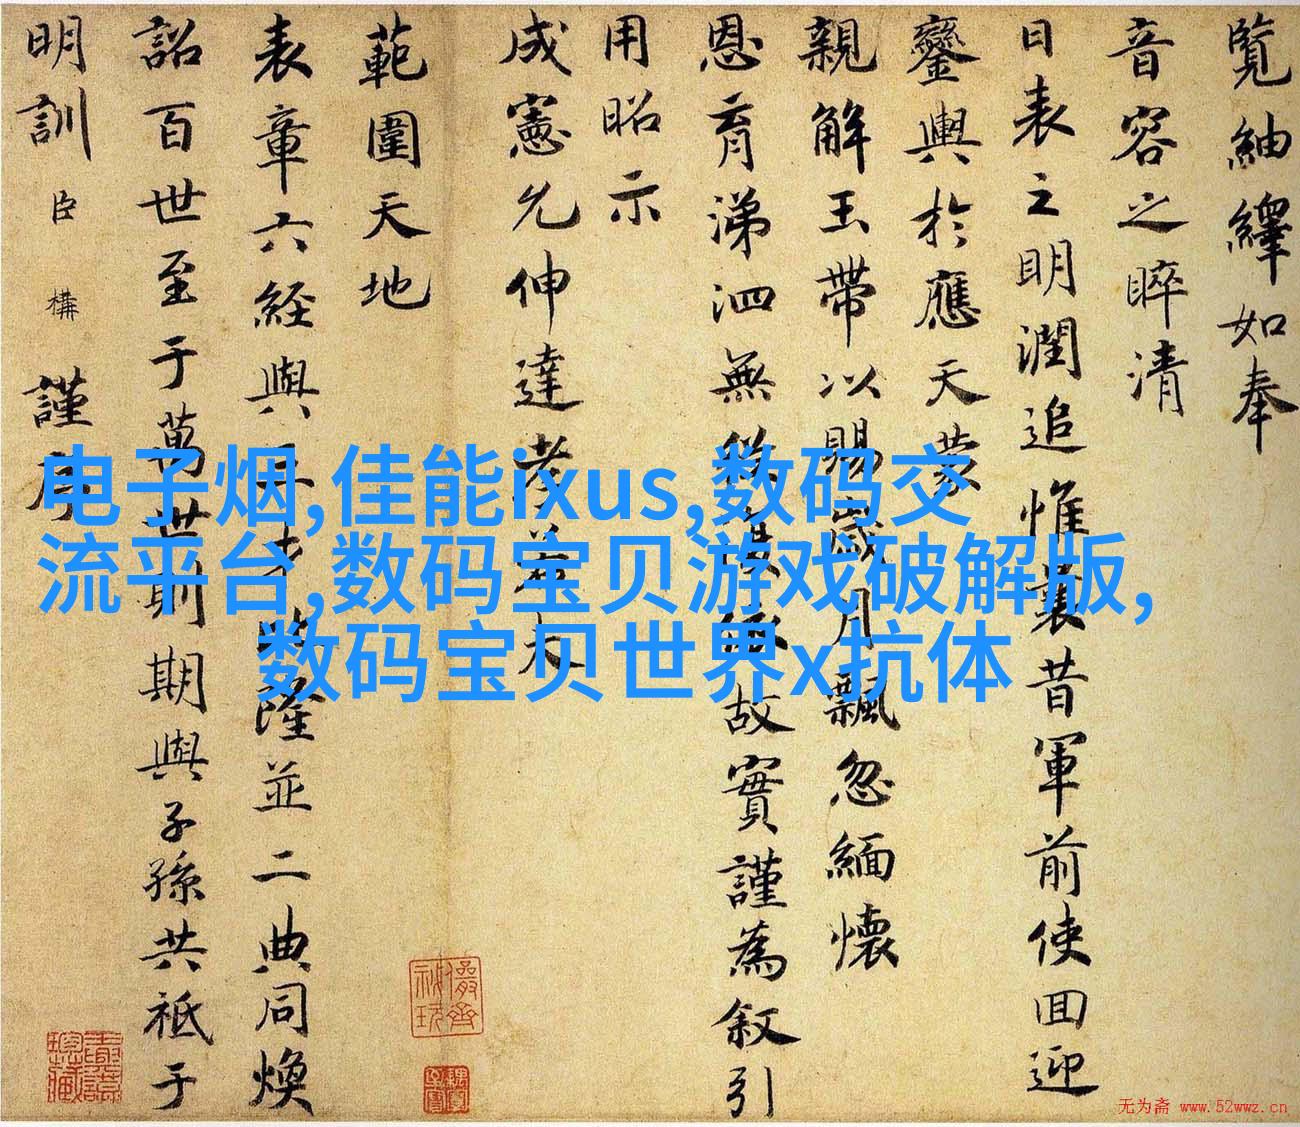 覽紬繹如奉
音容之睟清
日表之明潤追惟曩昔軍前使回迎
鑾輿於應天蒙
親解玉帶以賜歲月飄忽緬懷
恩育涕泗無故實謹為叙引
用昭示
成憲允伸達孝若夫
範圍天地
表章六經與隆並二典同煥
詔百世至于萬世則期與子孫共祗于
明訓臣構謹序
电子烟,佳能ixus,数码交
流平台,数码宝贝游戏破解版,
数码宝贝世界x抗体
无为斋 www.52wwz.cn